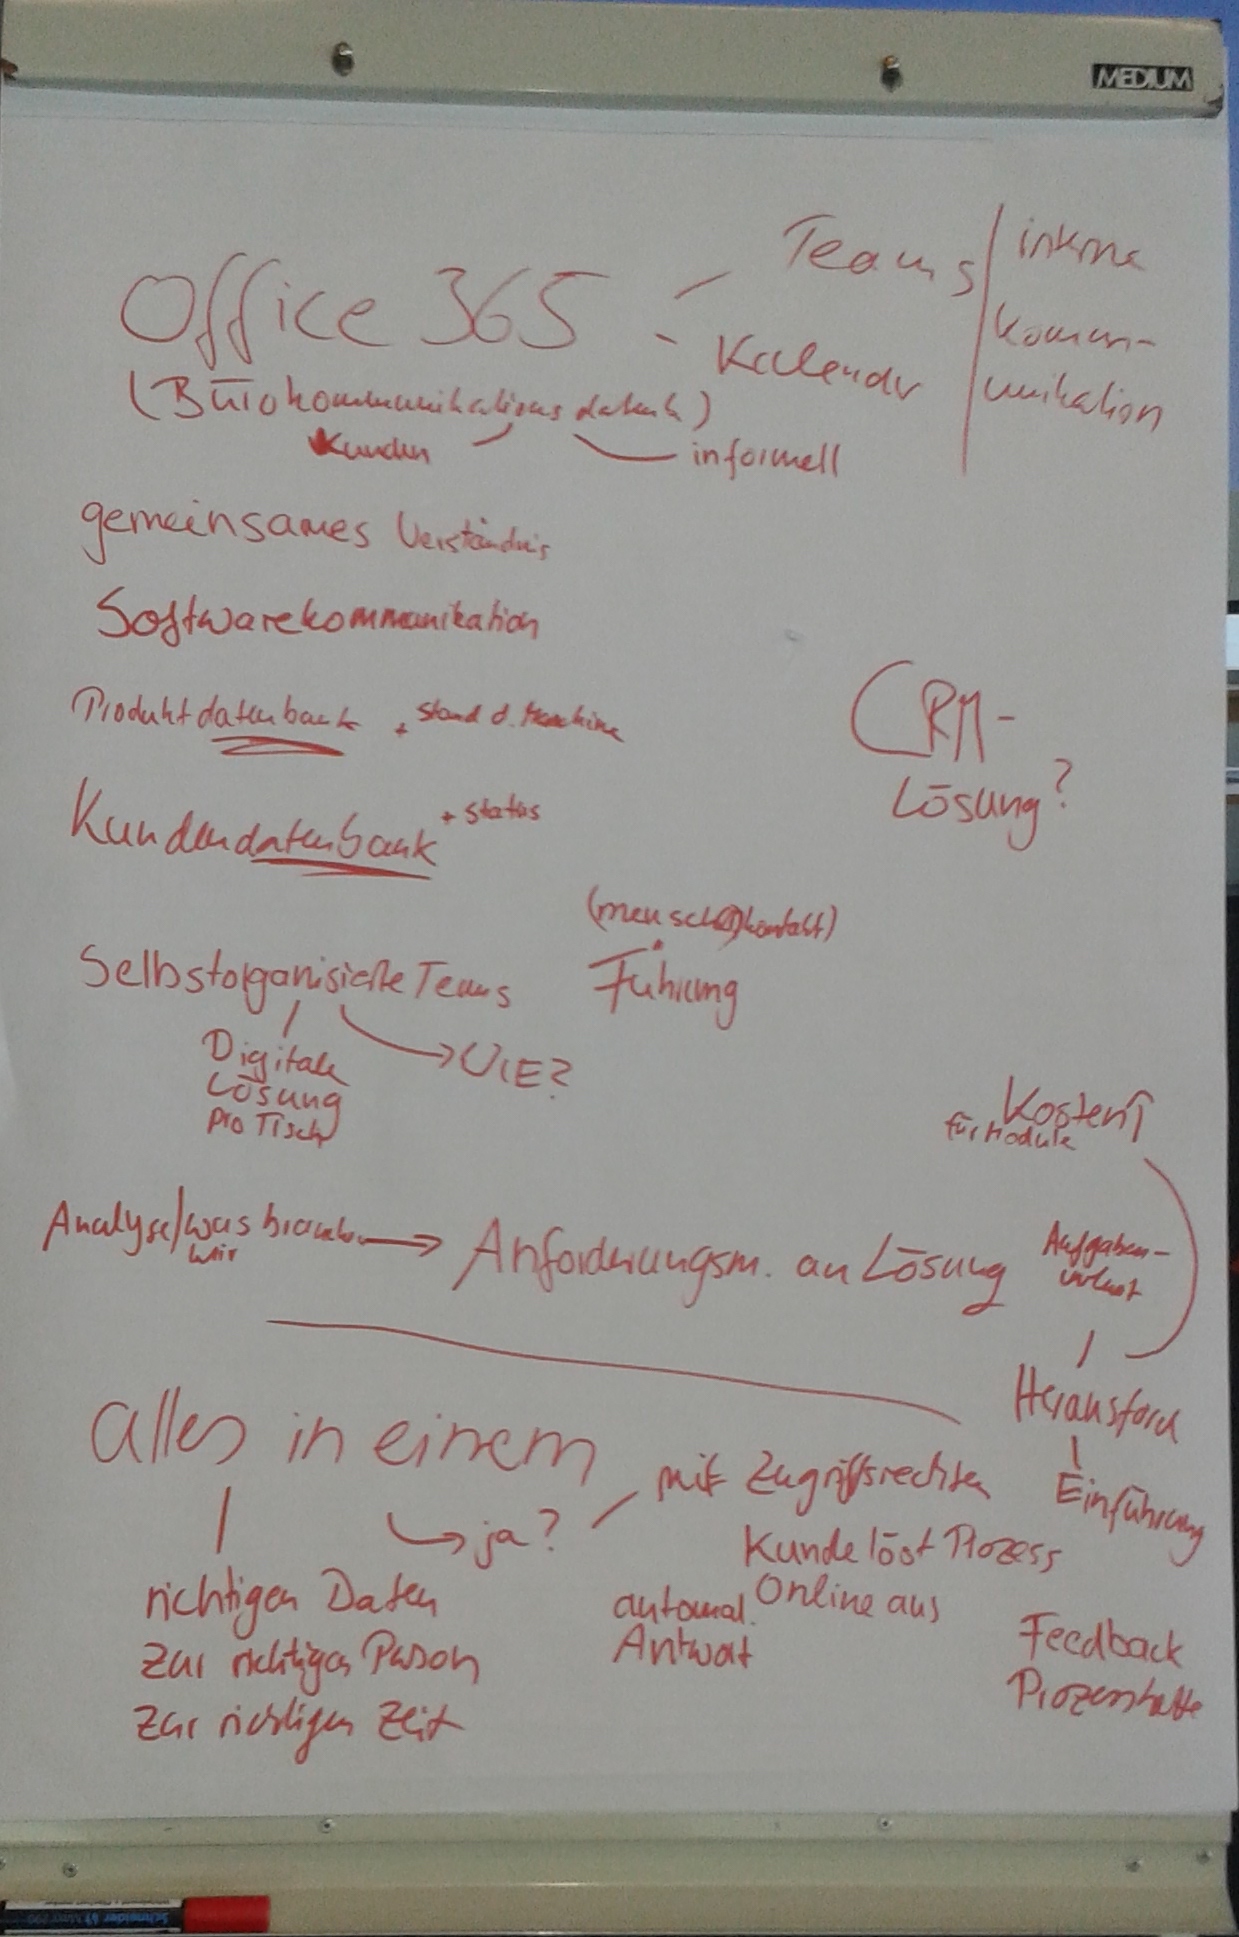 MEDIUM
Teams
interne
Office 365
Komm-
Kalender
unikation
(Bürokommunikations
Kunden
informell
gemeinsames Verständnis
Softwarekommunikation
Produktdatenbank + Stand d. Maschine
CRM-
Lösung?
Kundendatenbank + Status
(mensch
kontakt)
Selbstorganisierte Teams
Führung
Digitale
Lösung
pro Tisch
WIE?
Kosten↑
für Module
Analyse/was brauchen
wir
→ Anforderungsm. an Lösung
Aufgaben-
verlust
Herausford
Einführung
alles in einem
ja?
mit Zugriffsrechten
Kunde löst Prozess
Online aus
automat.
Antwort
richtigen Daten
zur richtigen Person
zur richtigen Zeit
Feedback
Prozesskette
Schneider